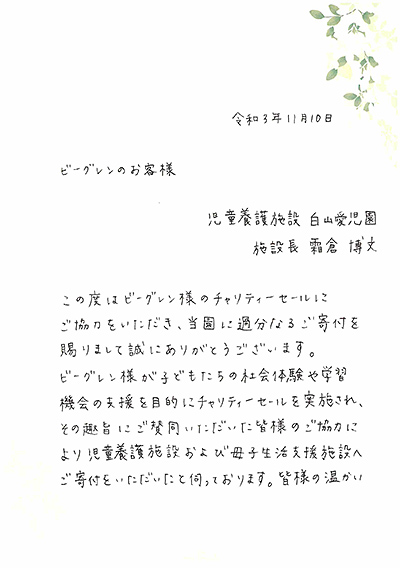 令和3年11月10日
ビーグレンのお客様
児童養護施設 白山愛児園
施設長 霜倉 博文
この度はビーグレン様のチャリティーセールに
ご協力をいただき、当園に過分なるご寄付を
賜りまして誠にありがとうございます。
ビーグレン様が子どもたちの社会体験や学習
機会の支援を目的にチャリティーセールを実施され、
その趣旨にご賛同いただいた皆様のご協力に
より児童養護施設および母子生活支援施設へ
ご寄付をいただいたと伺っております。皆様の温かい